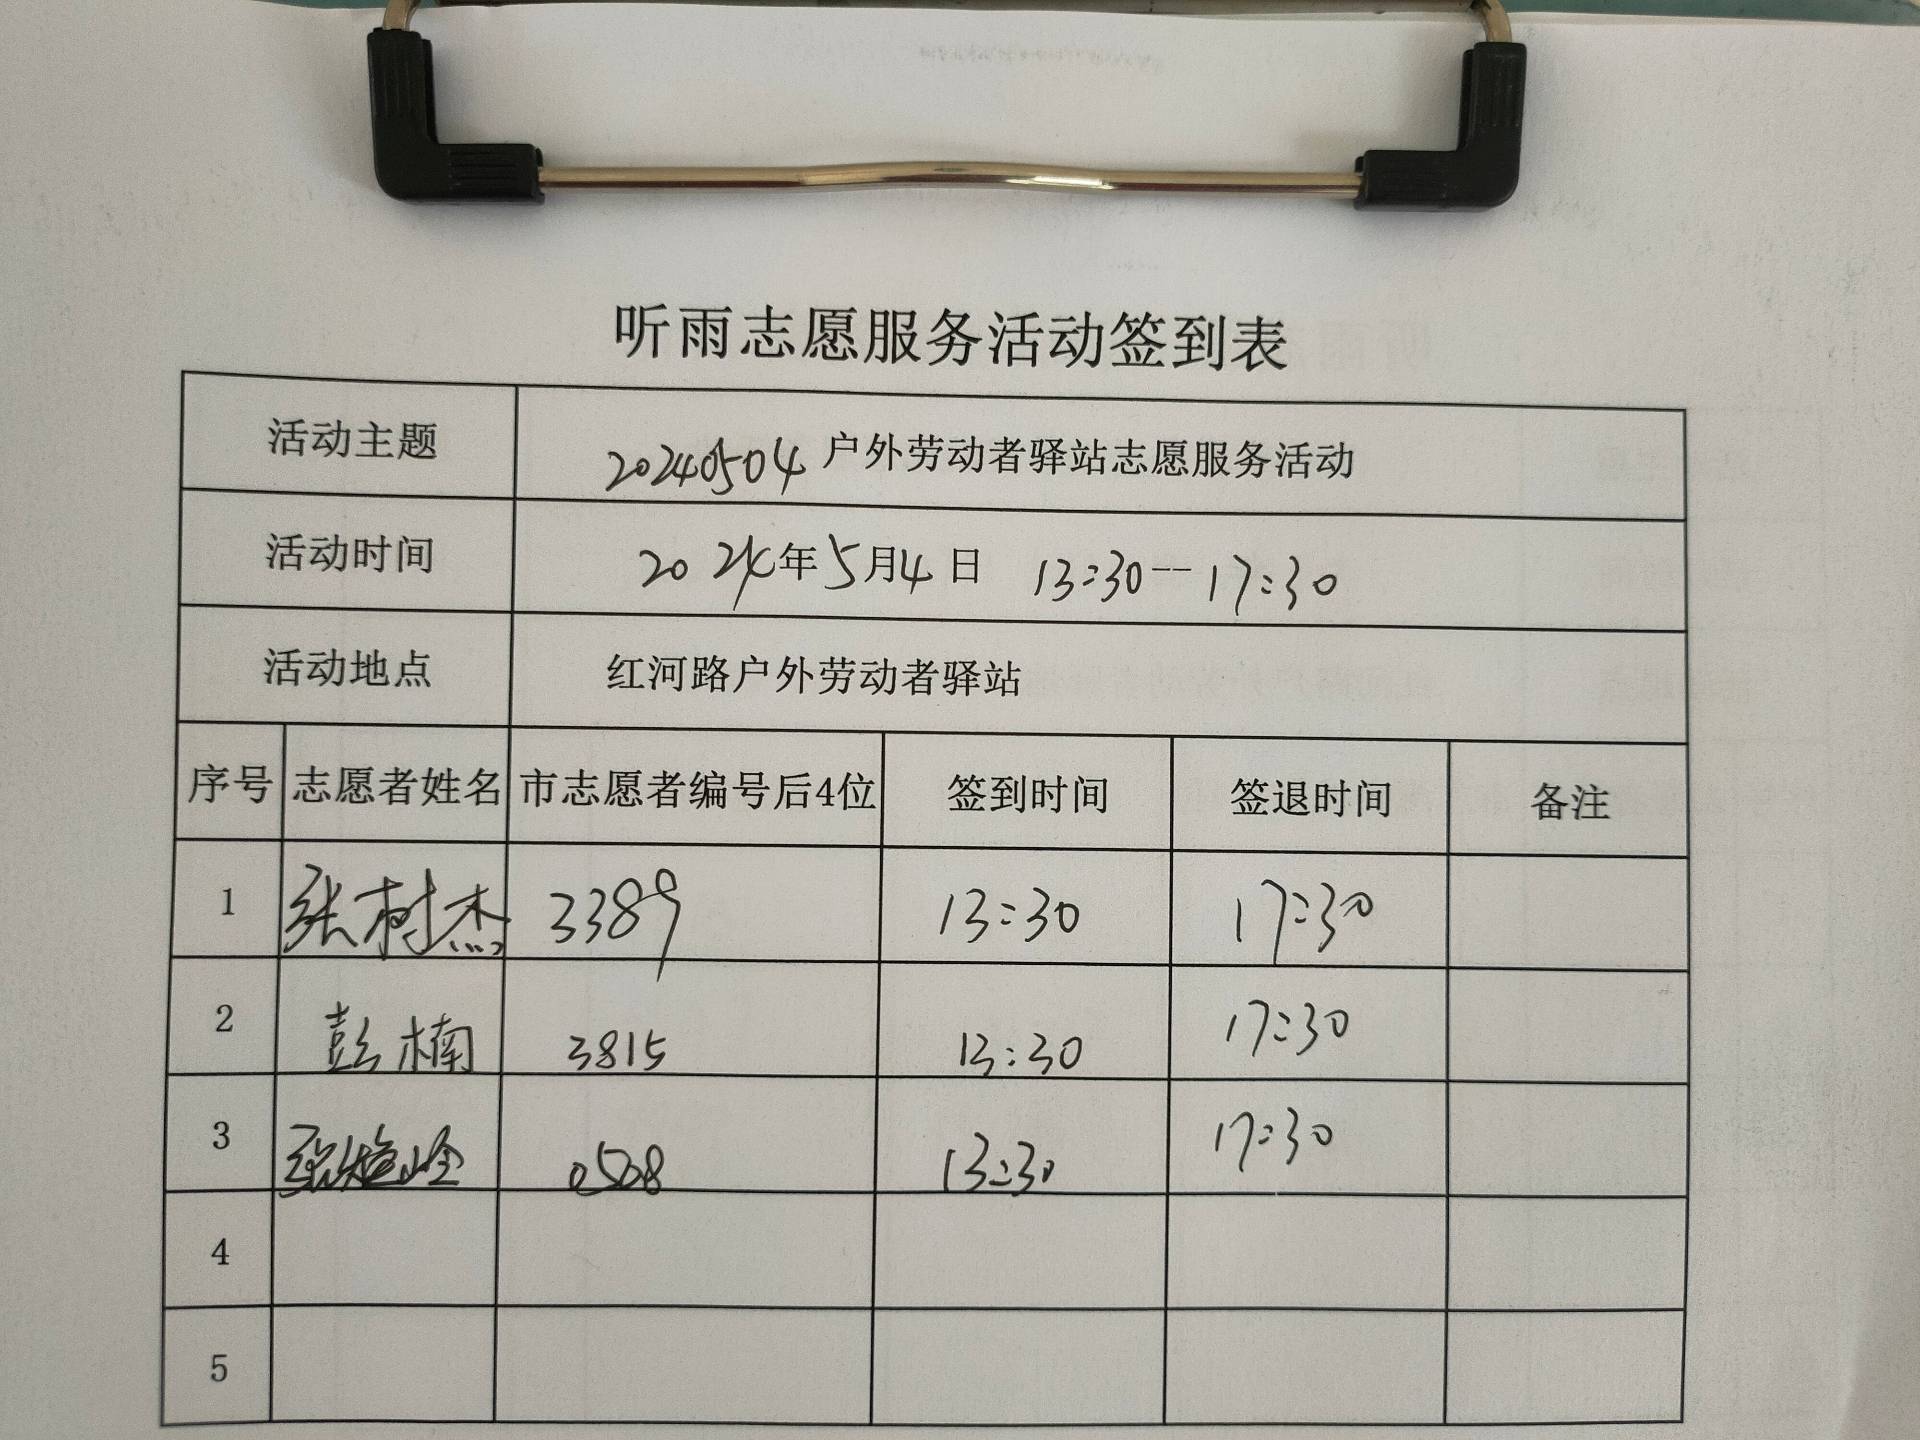 听雨志愿服务活动签到表
活动主题 20240504 户外劳动者驿站志愿服务活动
活动时间 2024年5月4日 13:30--17:30
活动地点 红河路户外劳动者驿站
序号 志愿者姓名 市志愿者编号后4位 签到时间 签退时间 备注
1 张树杰 3389 13:30 17:30
2 彭楠 3815 13:30 17:30
3 0508 13:30 17:30
4
5